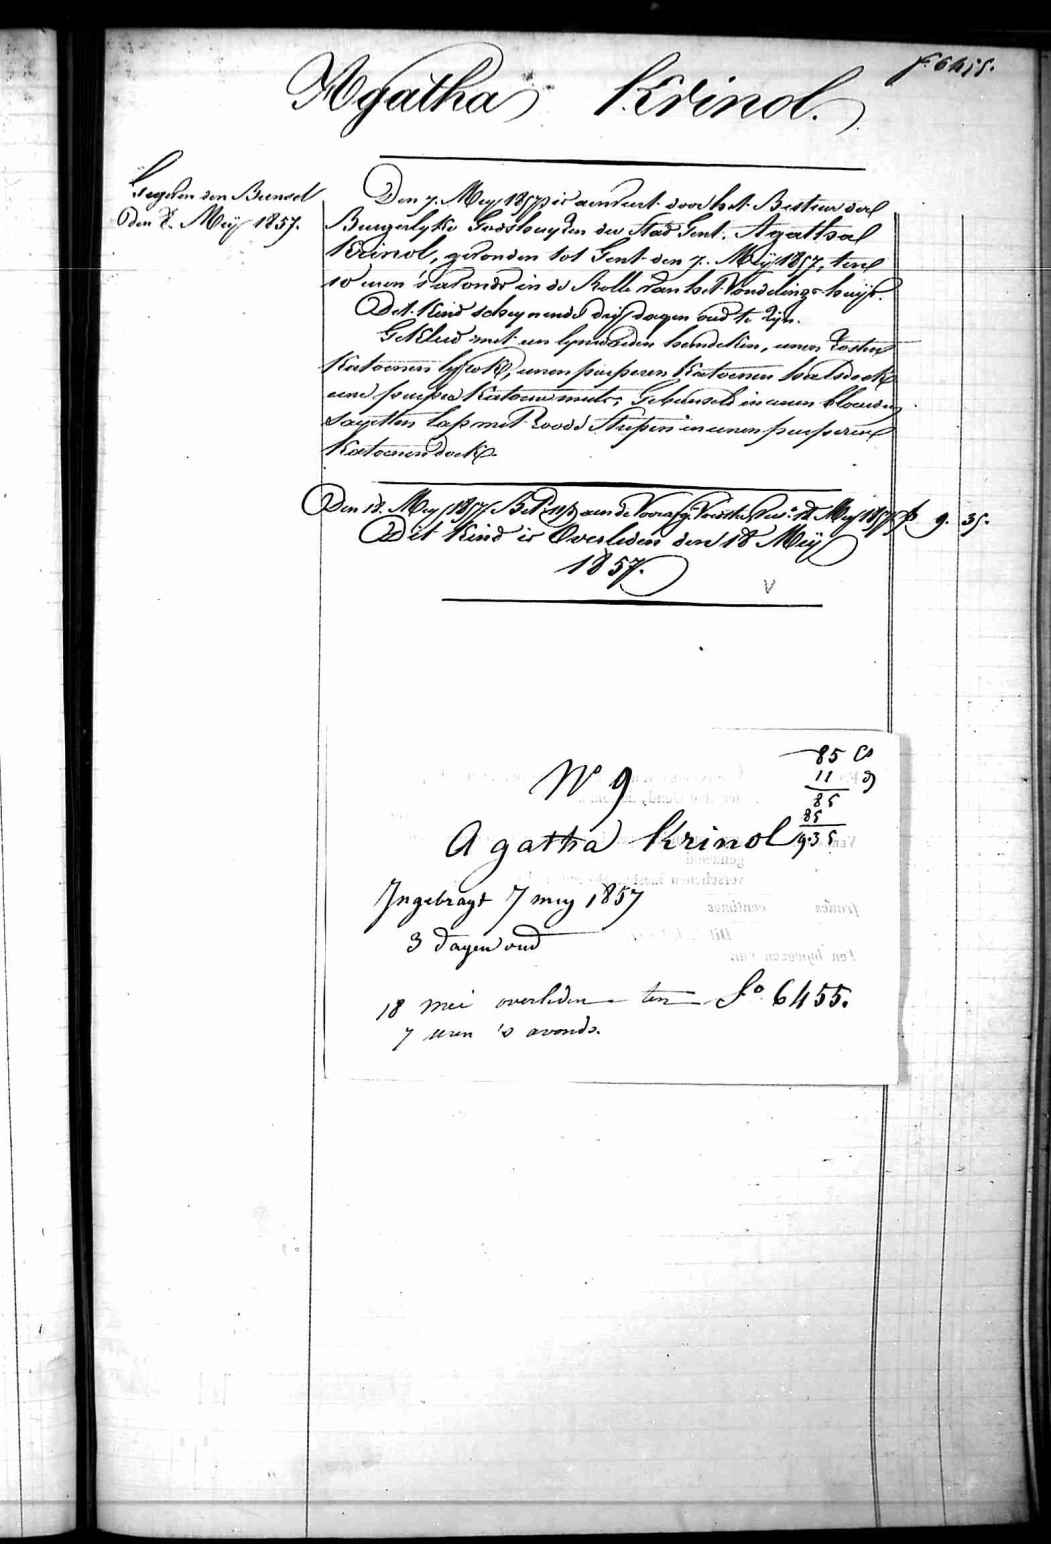 f. 6455.
Agatha Krinol.
Gegeven den Bunsel
den 7. Meÿ 1857.
Den 7. Meÿ 1857 is aenveert door het Bestuer der
Burgerlyke Godshuyzen der Stad Gent. Agatha
Krinol, gevonden tot Gent den 7. Meÿ 1857, ten
10 uren 's avonds in de Rolle van het Vondelings-huÿs.
Dit Kind schynende drÿ dagen oud te zyn.
Gekleed met een lynwaeden hemdeken, eenen
Katoenen lyfrok, eenen purperen Katoenen halsdoek
eene purpere Katoene muts, Gebunseld in eenen blauwen
sayetten lap met Roode Strepen in eenen purperen
Katoenen doek.
Den 18. Meÿ 1857 aen de Voedster 18 Meÿ 1857 f. 9. 35.
Dit Kind is Overleden den 18 Meÿ
1857.
V
85 C
N° 9 11 d
85
85
Agatha Krinol 9.35
Ingebragt 7 mey 1857
3 dagen oud
18 mei overleden ten f° 6455.
7 uren 's avonds.